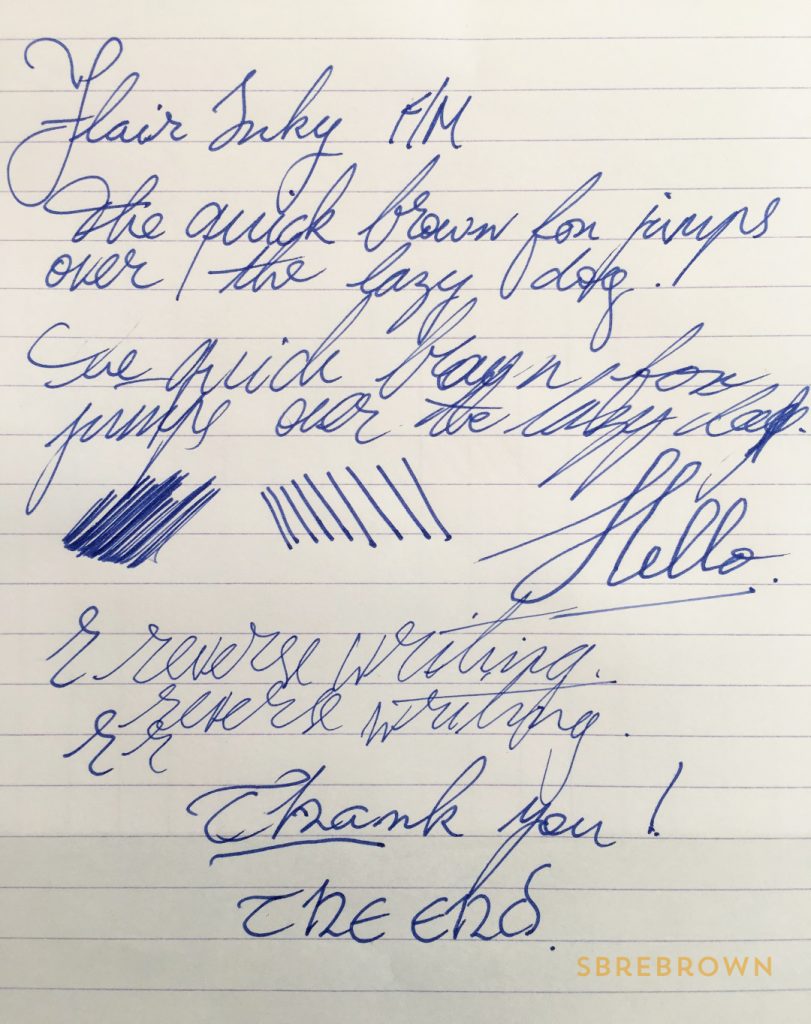 Flair Inky F/M
The quick brown fox jumps
over the lazy dog.
The quick brown fox
jumps over the lazy dog.
Hello.
r reverse writing.
reverse writing.
r r
Thank you!
The end.
SBREBROWN